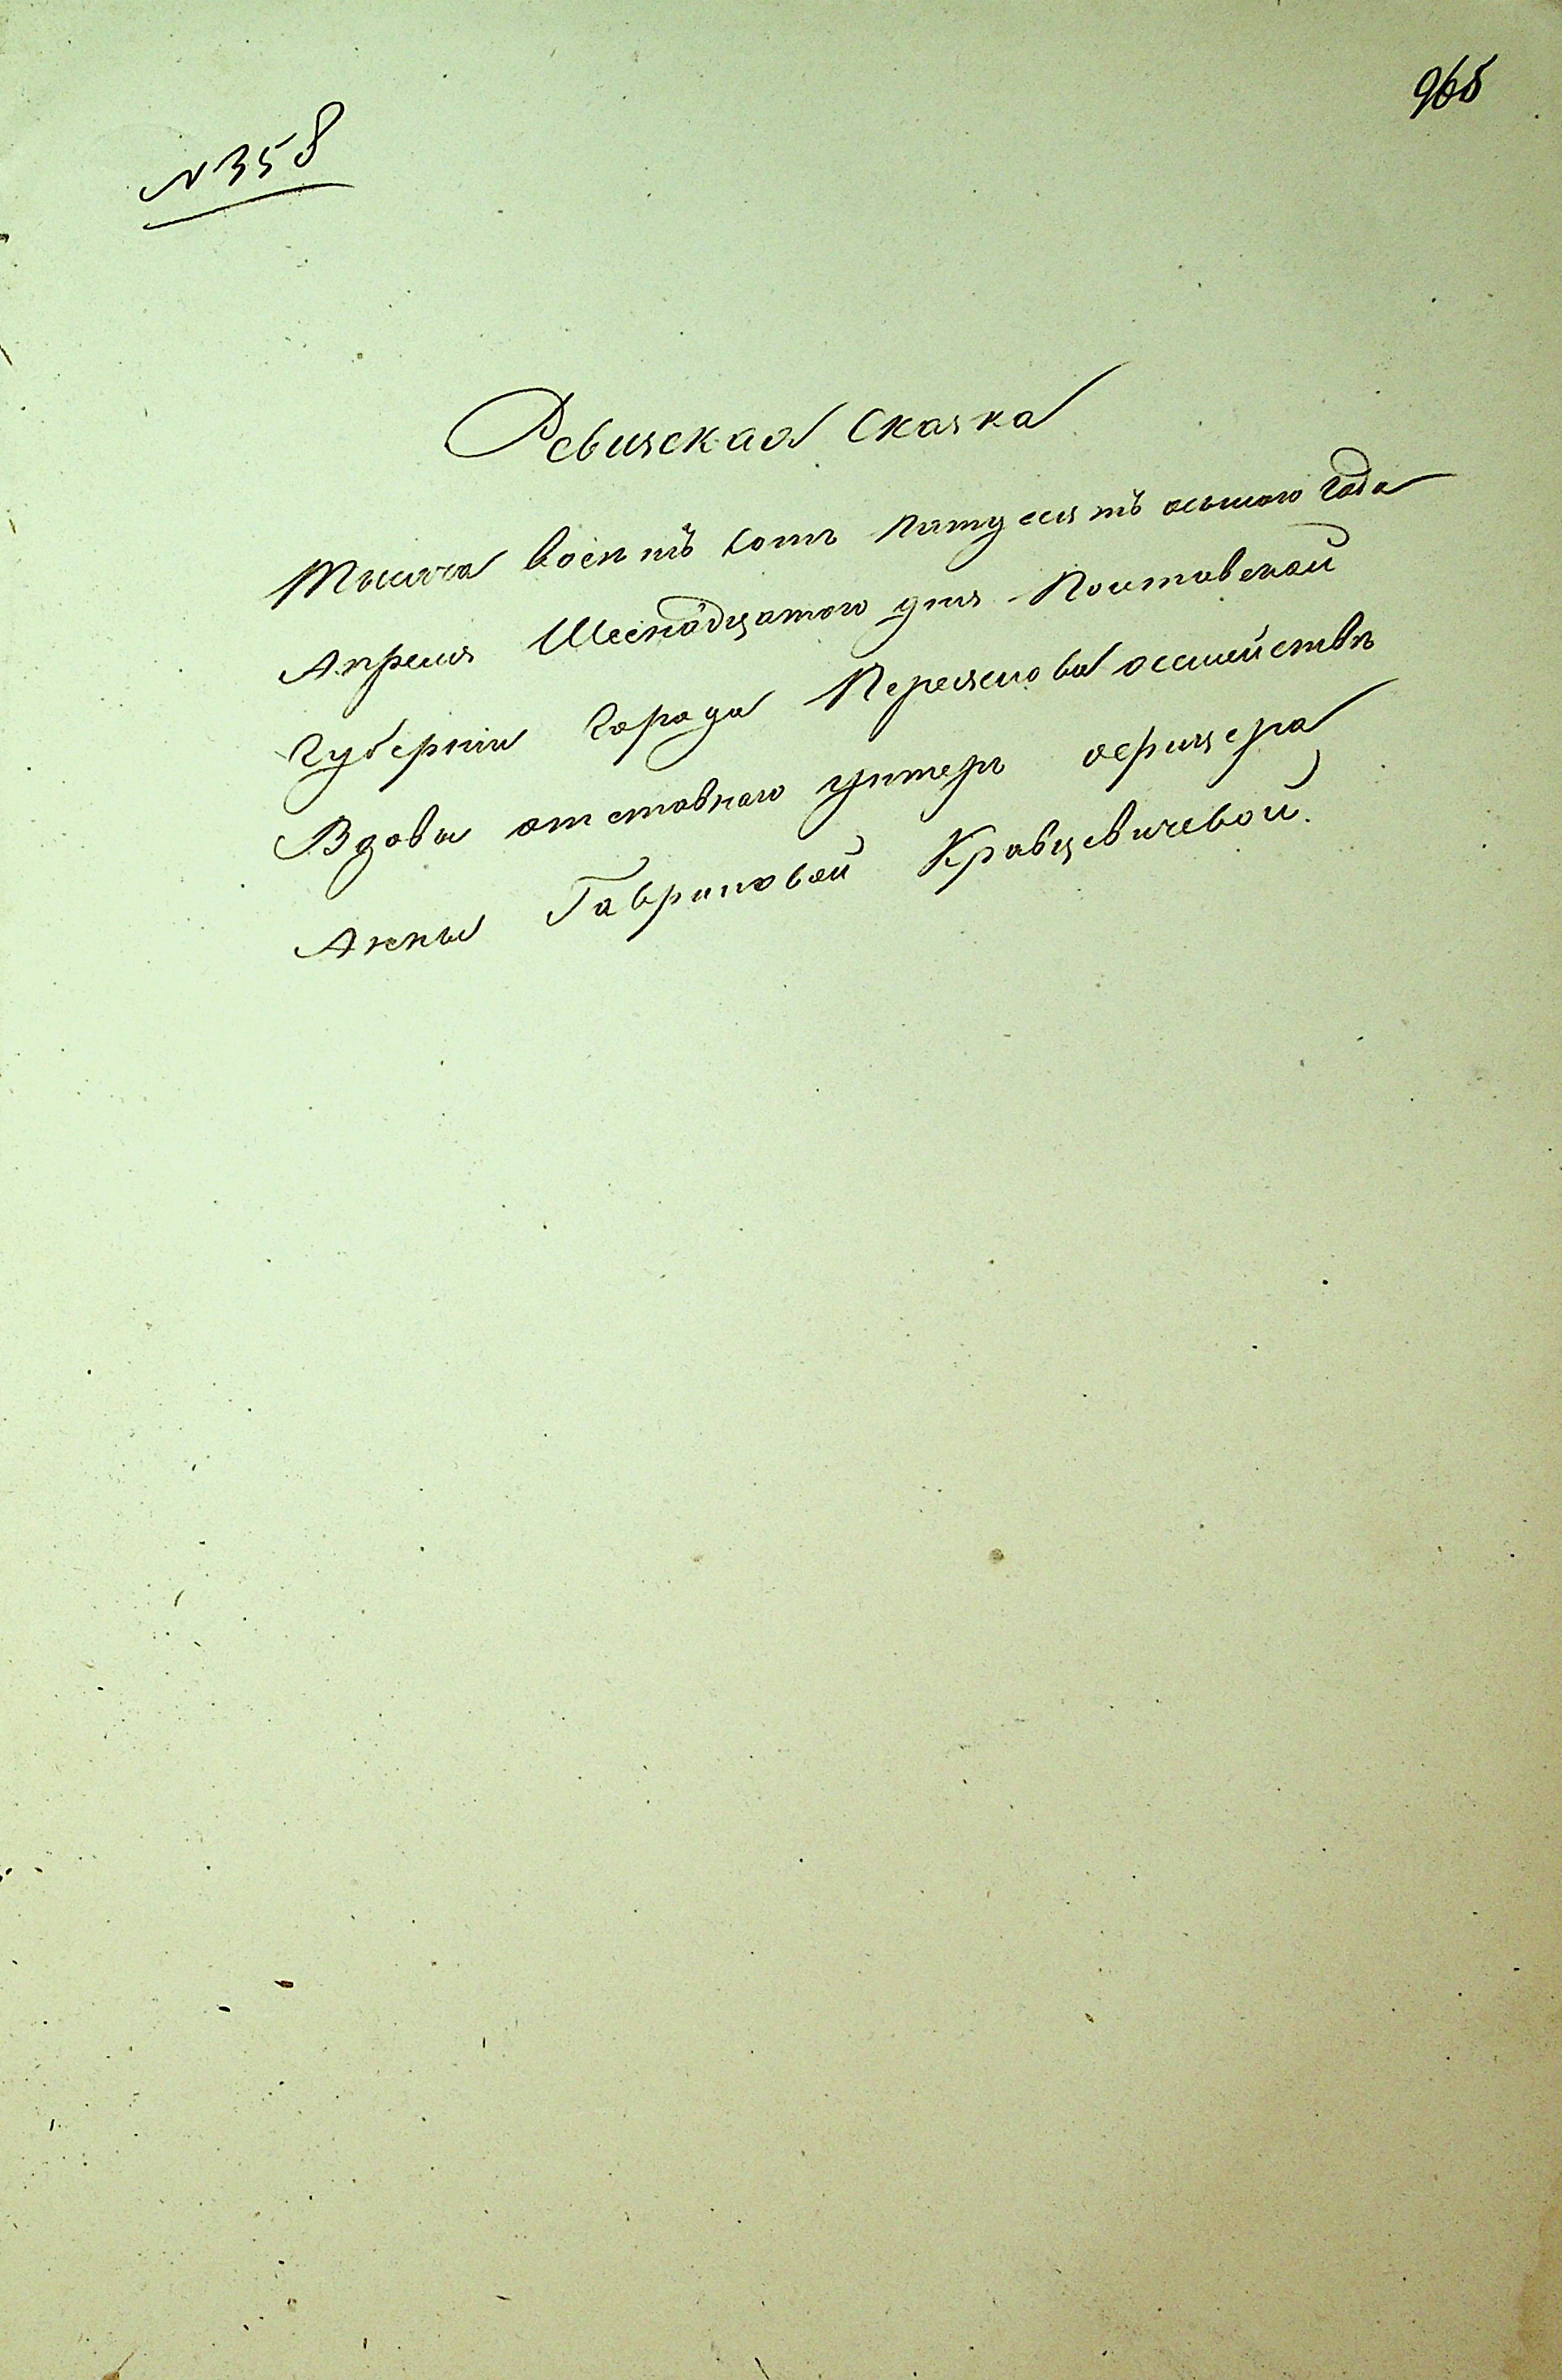 965
№ 358
Ревизская Сказка
Тысяча восемъ сотъ пятдесятъ осьмого года
Апреля Шеснадцатого дня Полтавской
Губернии Города Переяслова осемействѣ
Вдовы отставнаго унтеръ офицера
Анны Гавриловой Кравцевичевой.